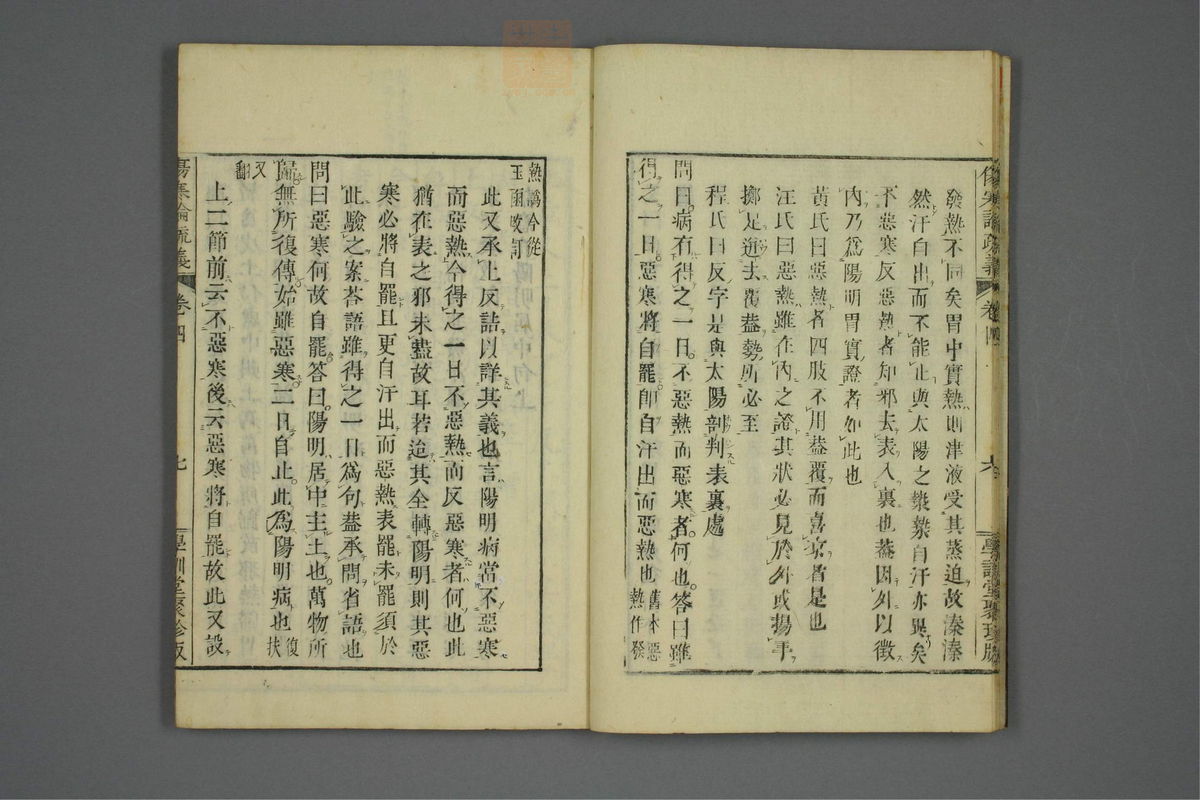 傷寒論疏義 卷四 六 學訓堂聚珍版
發熱不同矣胃中實熱則津液受其蒸迫故濈濈
然汗自出而不能止與太陽之漐漐自汗亦異矣
不惡寒反惡熱者知邪去表入裏也蓋因外以徵
內乃爲陽明胃實證者如此也
黃氏曰惡熱者四肢不用蓋覆而喜涼者是也
汪氏曰惡熱雖在內之證其狀必見於外或揚手
擲足迸去覆蓋勢所必至
程氏曰反字是與太陽剖判表裏處
問曰病有得之一日不惡熱而惡寒者何也答曰雖
得之一日惡寒將自罷卽自汗出而惡熱也舊本惡
熱作發
熱譌今從
玉函改訂
此又承上反詰以詳其義也言陽明病當不惡寒
而惡熱今得之一日不惡熱而反惡寒者何也此
猶在表之邪未盡故耳若迨其全轉陽明則其惡
寒必將自罷且更自汗出而惡熱表罷未罷須於
此驗之案荅語雖得之一日爲句蓋承問省語也
問曰惡寒何故自罷答曰陽明居中主土也萬物所
歸無所復傳始雖惡寒二日自止此爲陽明病也復扶
又
翻
上二節前云不惡寒後云惡寒將自罷故此又設
傷寒論疏義 卷四 七 學訓堂聚珍版